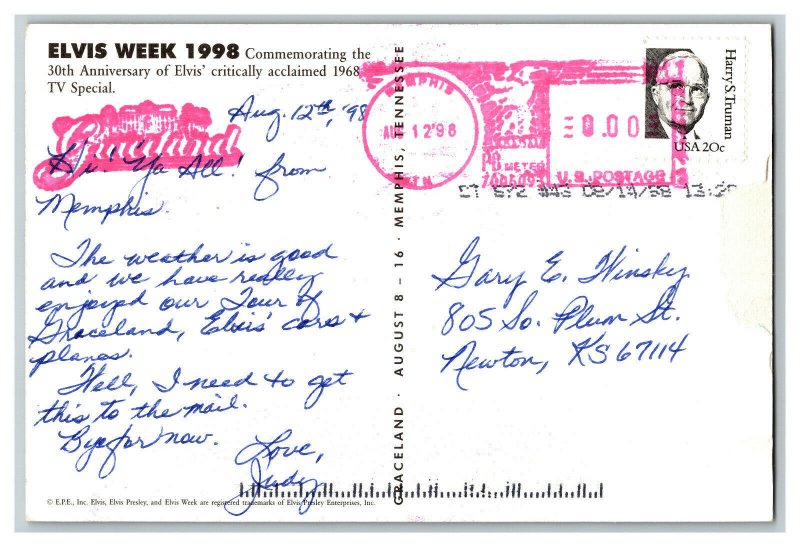 ELVIS WEEK 1998 Commemorating the
30th Anniversary of Elvis' critically acclaimed 1968
TV Special.
Graceland
Aug. 12th, '98
Hi! Ya All! from
Memphis.
The weather is good
and we have really
enjoyed our Tour of
Graceland, Elvis' cars +
planes.
Well, I need to get
this to the mail.
Bye for now.
Love,
Judy
© E.P.E., Inc. Elvis, Elvis Presley, and Elvis Week are registered trademarks of Elvis Presley Enterprises, Inc.
GRACELAND · AUGUST 8 – 16 · MEMPHIS, TENNESSEE
MEMPHIS
AUG 12'98
TN
0.00
PB
METER
U.S. POSTAGE
Harry S. Truman
USA 20c
08/14/98 13:20
Gary E. Winsky
805 So. Plum St.
Newton, KS 67114